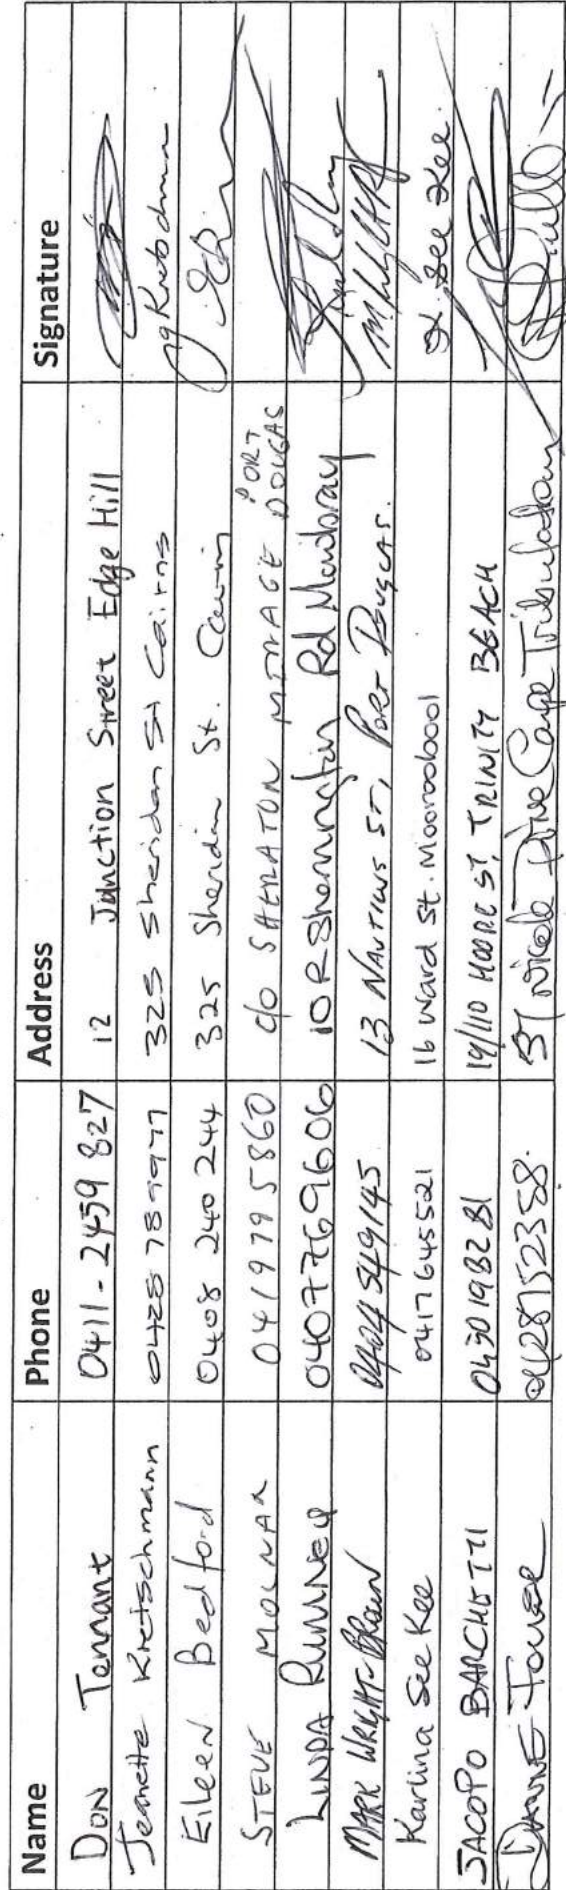 Name Phone Address Signature
DON Tennant 0411-2459 827 12 Junction Street Edge Hill
Jeanette Kretschmann 0428 789977 325 Sheridan St Cairns JgKretschmann
Eileen Bedford 0408 240 244 325 Sheridan St. Cairns
STEVE MOLNAR 0419795860 c/o SHERATON MIRAGE PORT DOUGAS
LINDA RUMNEY 0407769606 10R Shannonvale Rd Mowbray
MARK WRIGHT-BROWN 0404549145 13 NAUTILUS ST, PORT DOUGLAS.
Karlina See Kee 0417645521 16 Ward St. Mooroobool K. See Kee.
JACOPO BARCHETTI 0430198281 19/110 MOORE ST, TRINITY BEACH
0428152358. Nicole Drive Cape Tribulation